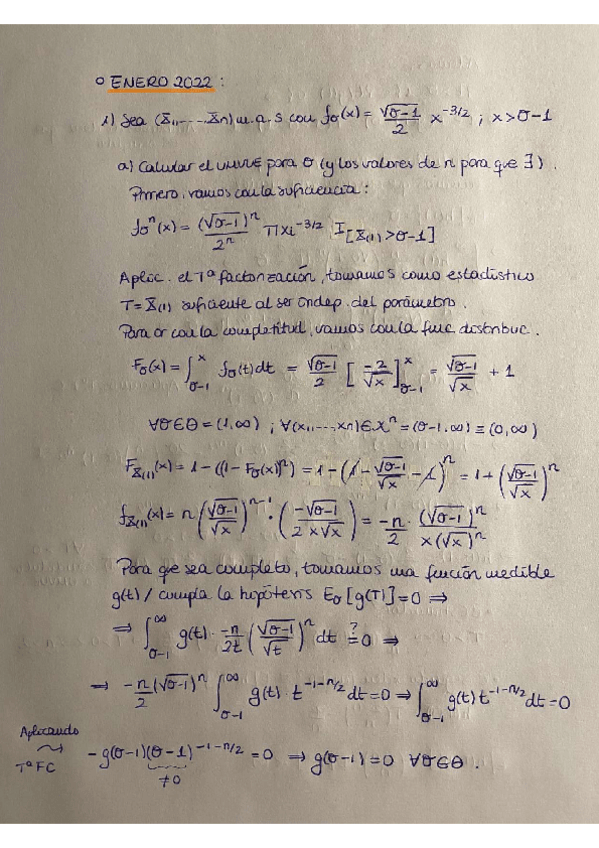 ○ ENERO 2022:
1) Sea (X₁,...,Xn) m.a.s con fθ(x) = √(θ-1)/2 x^(-3/2) ; x > θ-1
a) Calcular el UMVUE para θ (y los valores de n para que ∃).
Primero, vamos con la suficiencia:
fθⁿ(x) = (√(θ-1))ⁿ/2ⁿ πxi^(-3/2) I[X(1) > θ-1]
Aplic. el Tª factorización, tomamos como estadístico
T = X(1) suficiente al ser indep. del parámetro.
Para con la completitud, vamos con la func distribuc.
Fθ(x) = ∫_{θ-1}^{x} fθ(t)dt = √(θ-1)/2 [-2/√x]_{θ-1}^{x} = √(θ-1)/√x + 1
∀θ∈Θ = (1,∞) ; ∀(x₁,...,xn)∈Xⁿ = (θ-1,∞) ≡ (0,∞)
F_{X(1)}(x) = 1 - ((1 - Fθ(x))ⁿ) = 1 - (1 - √(θ-1)/√x - 1)ⁿ = 1 + (√(θ-1)/√x)ⁿ
f_{X(1)}(x) = n (√(θ-1)/√x)^(n-1) · (-√(θ-1)/(2x√x)) = -n/2 · (√(θ-1))ⁿ/(x(√x)ⁿ)
Para que sea completo, tomamos una función medible
g(t) / cumpla la hipótesis Eθ[g(T)] = 0 ⇒
⇒ ∫_{θ-1}^{∞} g(t) · -n/2t (√(θ-1)/√t)ⁿ dt =? 0 ⇒
⇒ -n/2 (√(θ-1))ⁿ ∫_{θ-1}^{∞} g(t) · t^(-1-n/2) dt = 0 ⇒ ∫_{θ-1}^{∞} g(t) t^(-1-n/2) dt = 0
Aplicando
TªFC
-g(θ-1)(θ-1)^(-1-n/2) = 0 ⇒ g(θ-1) = 0 ∀θ∈Θ.
≠0